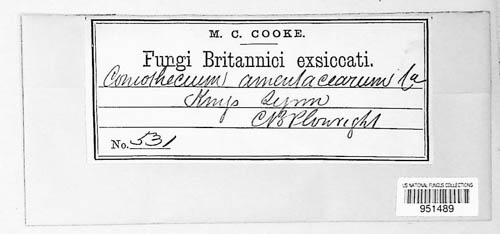 M. C. COOKE.
Fungi Britannici exsiccati.
Coniothecium amentacearum Ca
Kings Lynn
CB Plowright
No. 531
US NATIONAL FUNGUS COLLECTIONS
951489